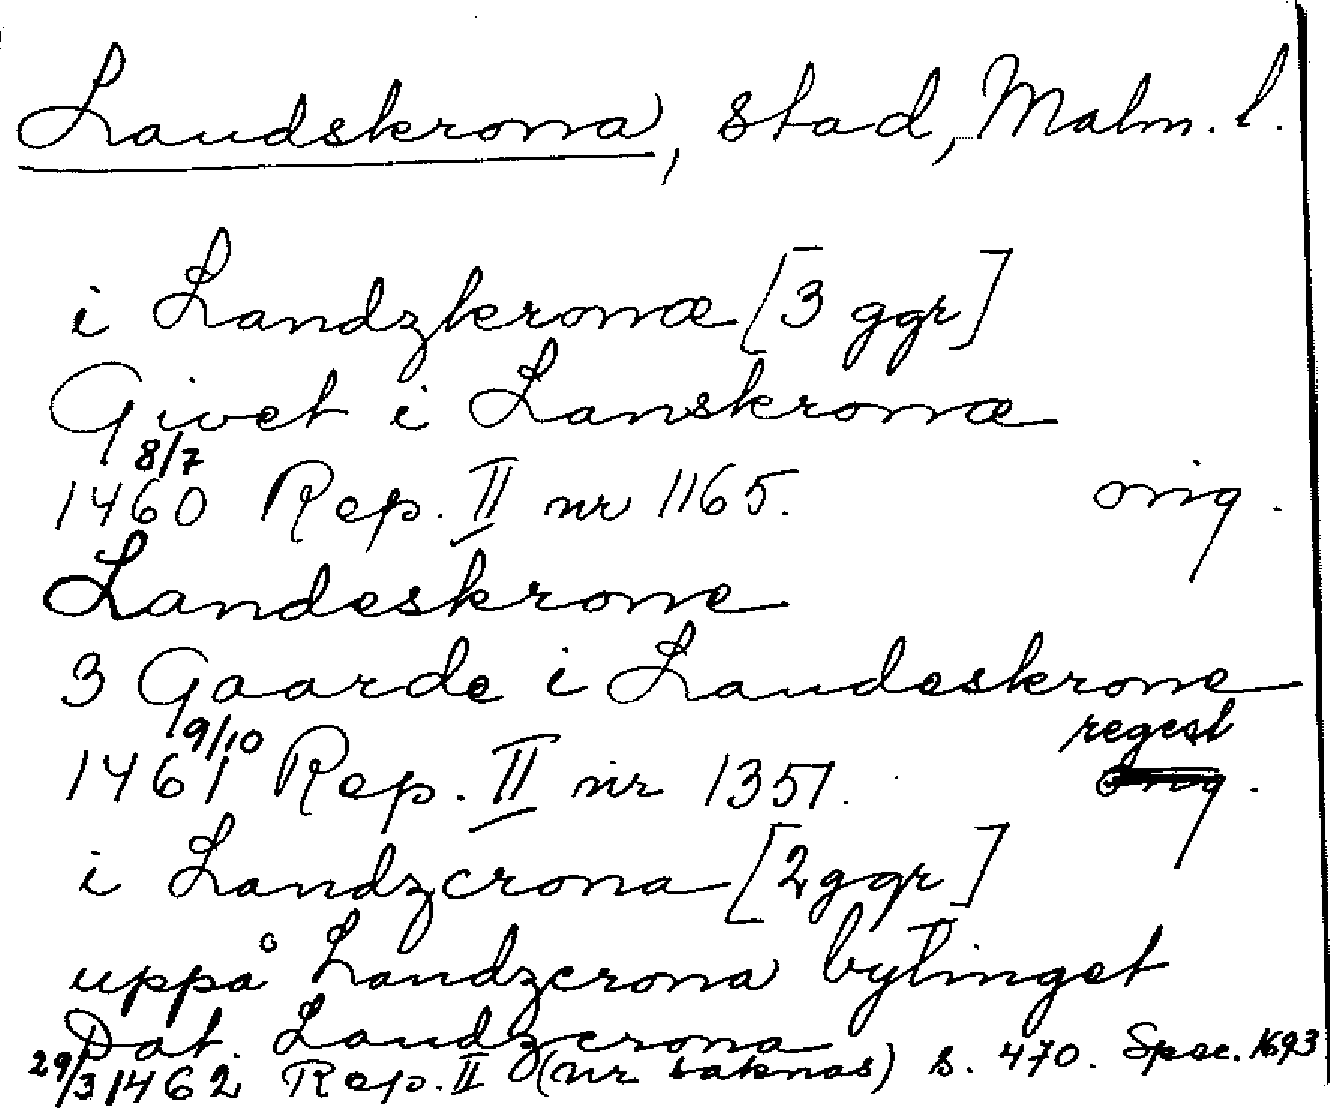 Landskrona, stad, Malm. l.
i Landzkronæ [3 ggr]
Givet i Lanskronæ
8/7
1460 Rep. II nr 1165. orig.
Landeskrone
3 Gaarde i Landeskrone
9/10 regest
1461 Rep. II nr 1351. orig.
i Landzcrona [2 ggr]
uppå Landzcrona bytinget
Dat. Landzcrona
29/3 1462 Rep. II (nr saknas) s. 470. Spec. 1693